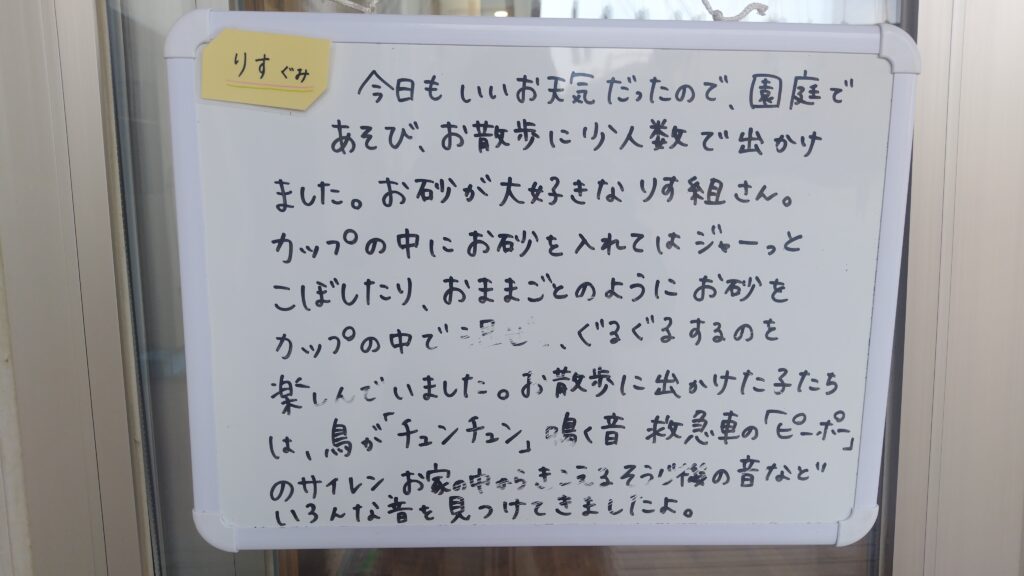 りすぐみ
今日もいいお天気だったので、園庭で
あそび、お散歩に少人数で出かけ
ました。お砂が大好きなりす組さん。
カップの中にお砂を入れてはジャーっと
こぼしたり、おままごとのようにお砂を
カップの中で混ぜ、ぐるぐるするのを
楽しんでいました。お散歩に出かけた子たち
は、鳥が「チュンチュン」鳴く音 救急車の「ピーポー」
のサイレン お家の中からきこえるそうじ機の音など
いろんな音を見つけてきましたよ。